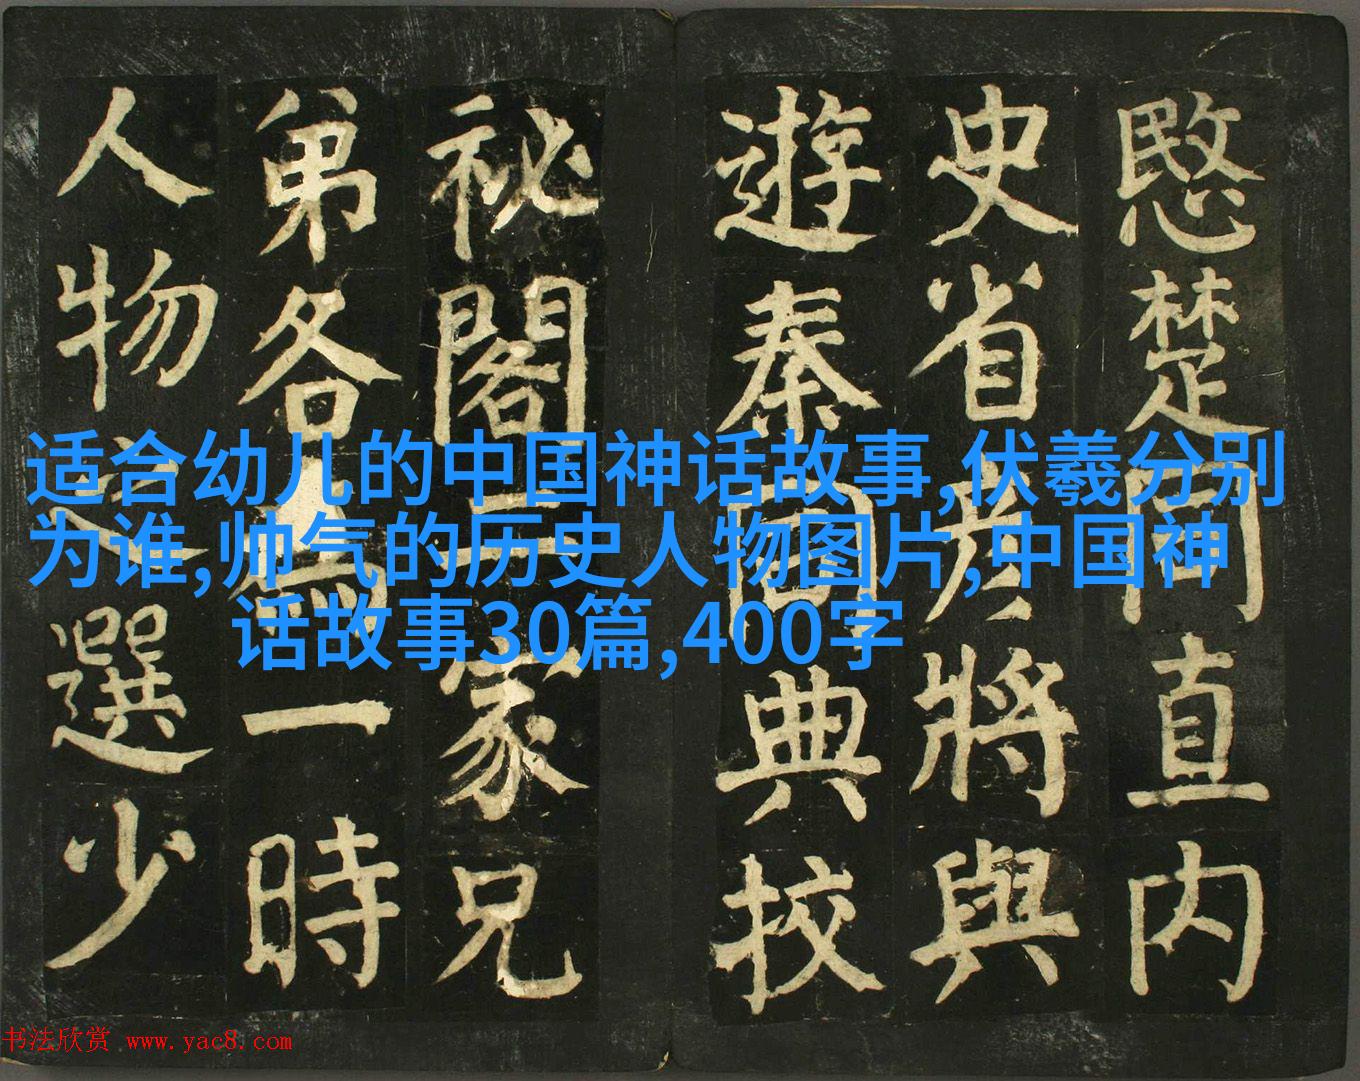 愍楚同直內
史省彥將與
遊秦同典校
祕閣二家兄
弟各一時
人物之選少
适合幼儿的中国神话故事,伏羲分别
为谁,帅气的历史人物图片,中国神
话故事30篇,400字
书法欣赏 www.yac8.com